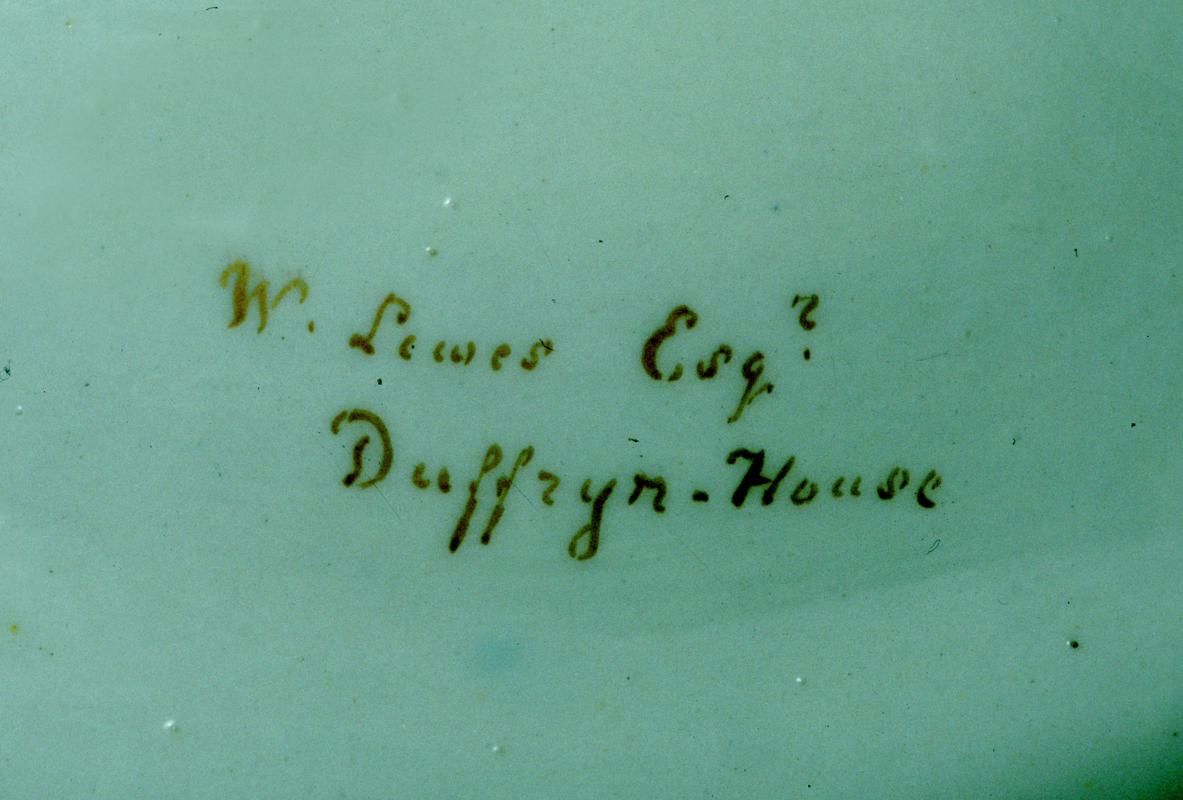 W. Lewes Esqr.
Duffryn-House